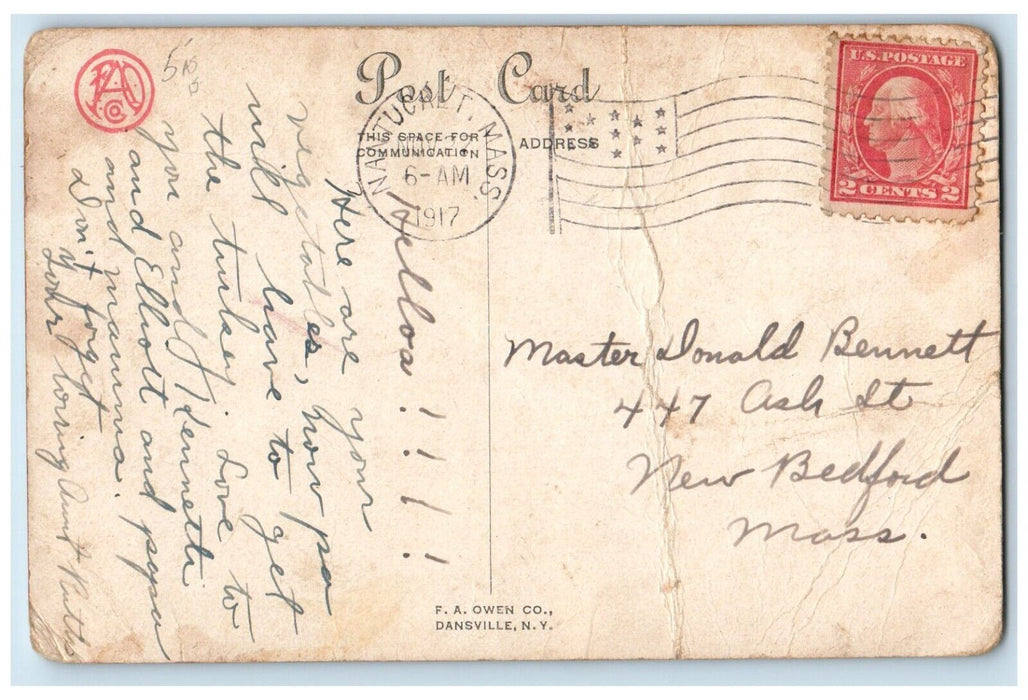 FAO Co
5
Post Card
THIS SPACE FOR
COMMUNICATION
ADDRESS
NANTUCKET, MASS.
6-AM
1917
U.S. POSTAGE
2 CENTS 2
Hellos!!!!
Here are your
vegetables, how pa
will have to get
the turkey. Love to
you and Kenneth
and Elliott and papa
and mamma.
Don't forget
your loving Aunt Ruth
Master Donald Bennett
447 Ash St
New Bedford
Mass.
F. A. OWEN CO.,
DANSVILLE, N.Y.